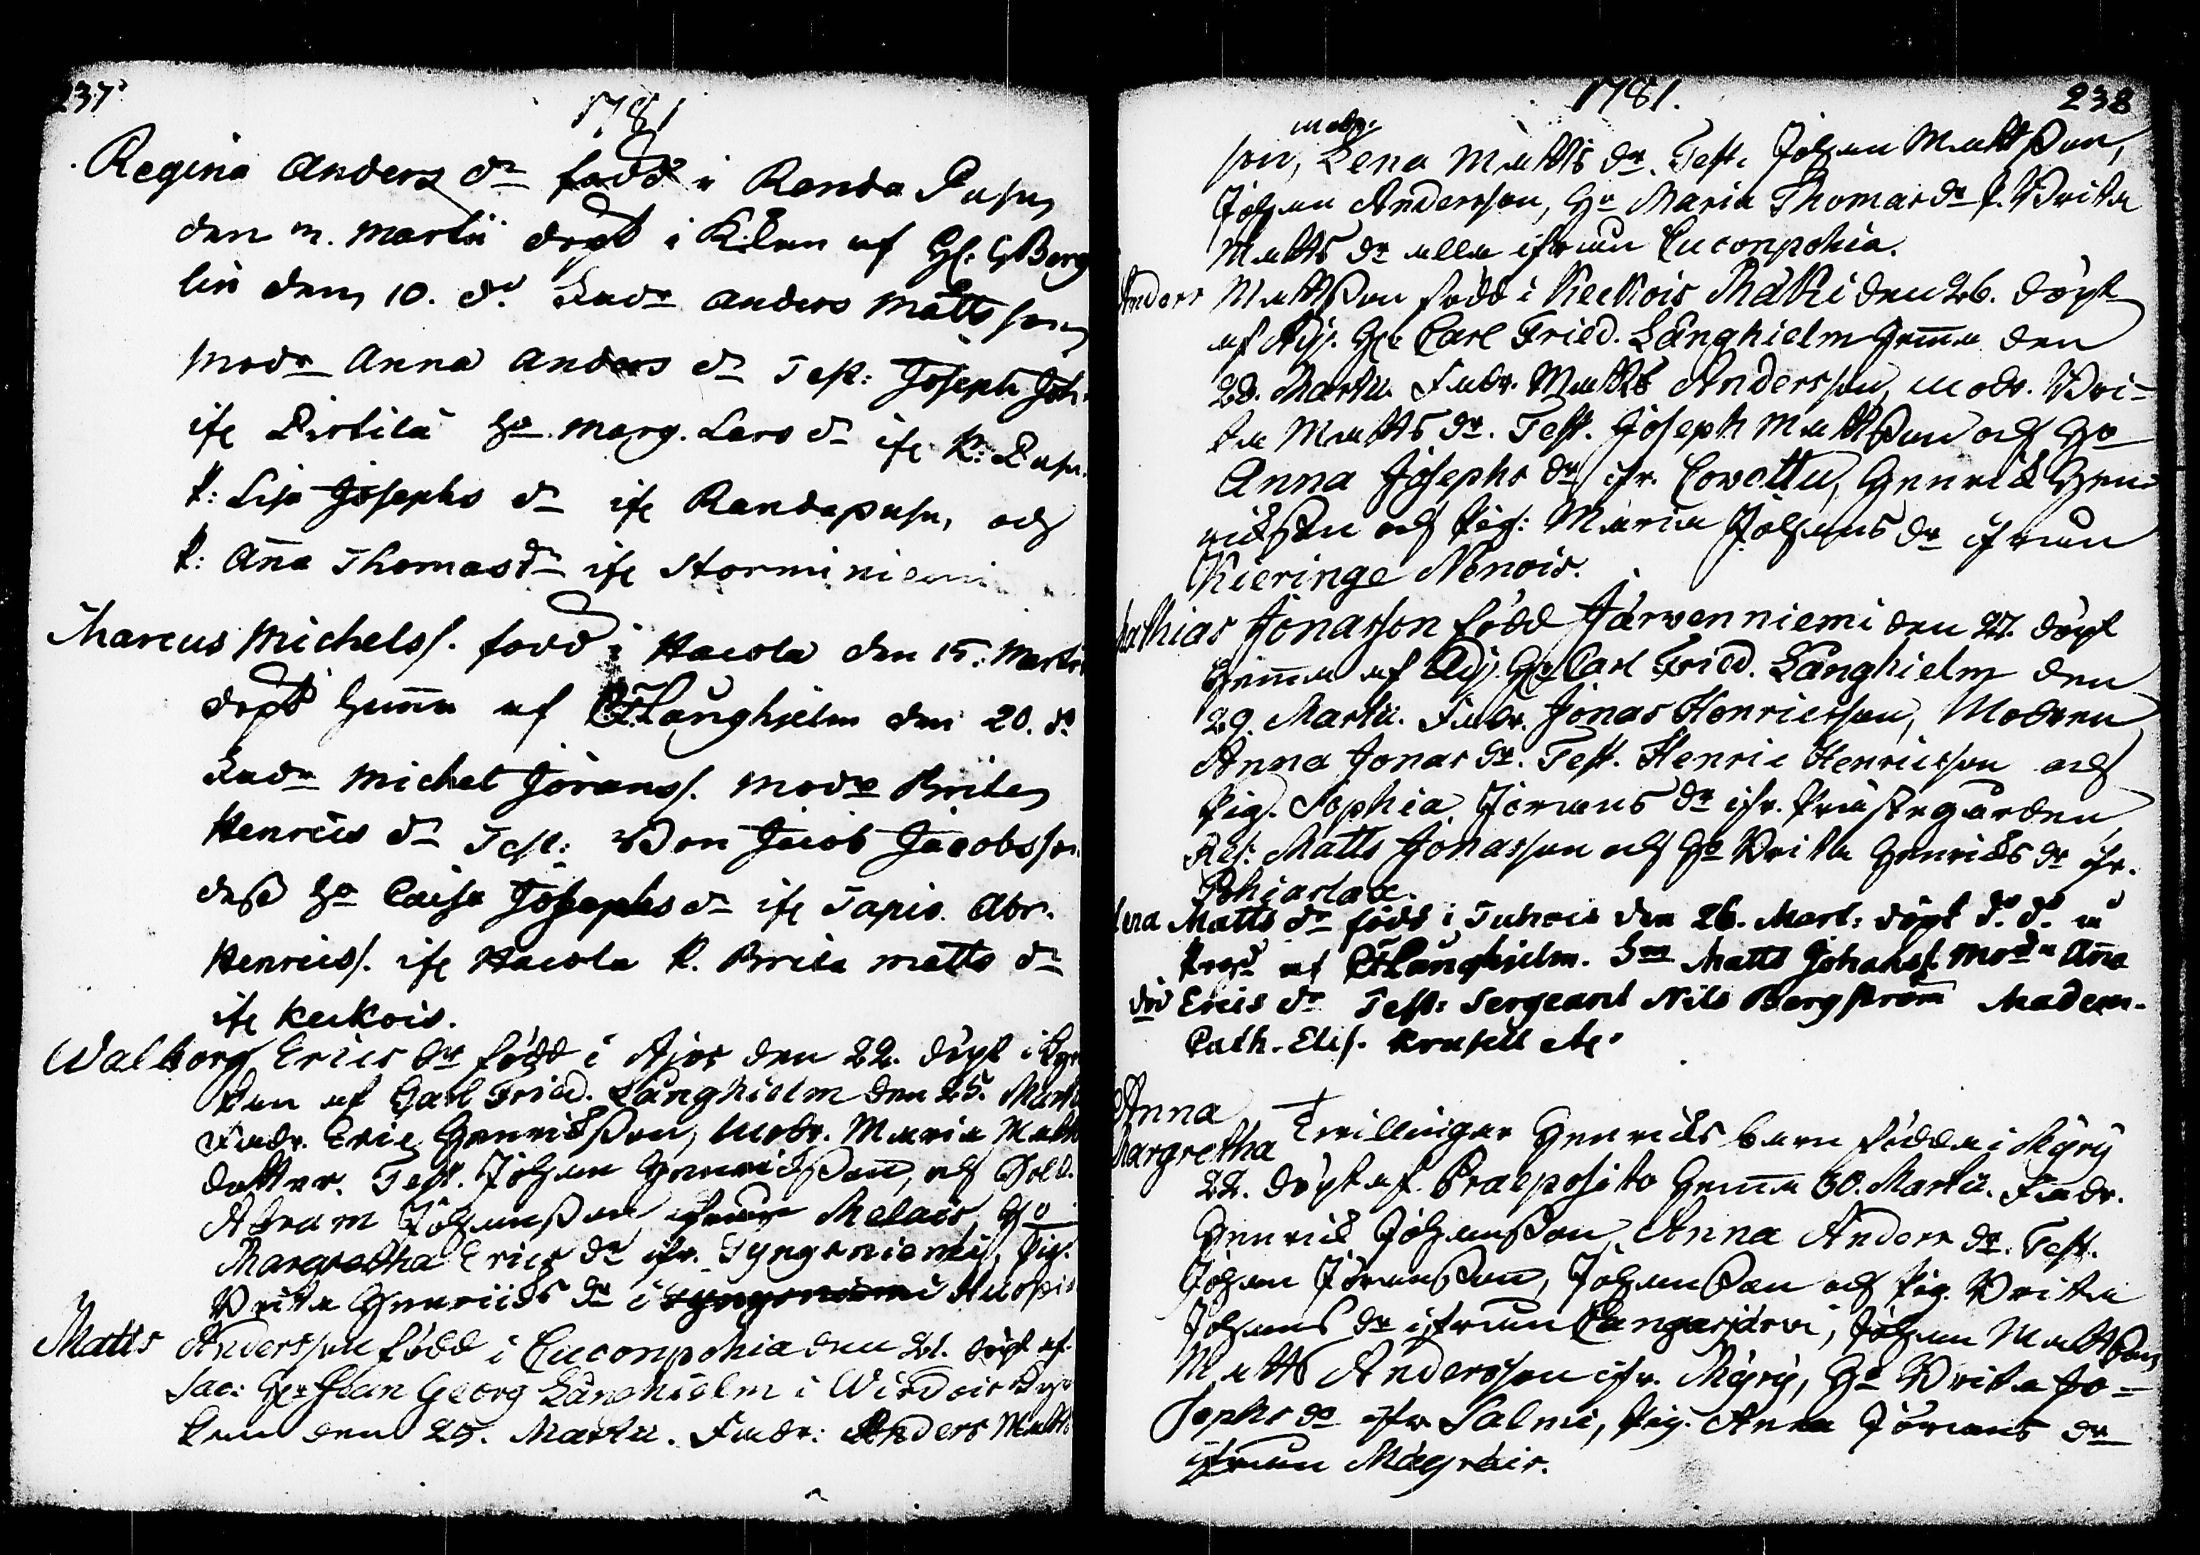 237
1781
Regina Anders dr född i Randa Pusu
den m. Martii döpt i Kÿrkan af H. G Berg
lin dem 10. do Fadr Anders Matts son
Modr Anna Anders dr Test: Joseph Joh.
ifr Pirtilä ho. Marg. Lars dr ifr R: Pusu.
P: Lisa Josephs dr ifr Randapusu, och
P: Aña Thomas dr ifr Storminiemi
Marcus Michelss. född i Hacola den 15. Martii
döpt hemma af CFLånghjelm den 20. do
Fadr Michel Jöranss. Modr Brita
Henrics dr Test: Bon Jacob Jacobsson
dess ho Caisa Josephs dr ifr Tapio. Abr.
Henricss. ifr Hacola P. Brita Matts dr
ifr Keckois.
Walborg Erics dr född i Ajos den 22. döpt i Kyr
kan af Carl Fried. Långhielm den 25. Martii
Fadr. Eric Henricksson, Modr. Maria Matts
dotter. Test. Johan Henricksson, och Sold.
Abram Johansson ifrån Melais, Ho
Margretha Erics dr ifr. Tyngsniemi, Pig.
Brita Henricks dr i Tyngsniemi Huopis
Matts Andersson född i Luconpohia den 21. döpt af
Sac: Hr Johan Georg Långhielm i Wirdois Kyr
kan den 25. Martii. Fadr: Anders Matts
1781.
238
modr.
son, Lena Matts dr. Test. Johan Mattsson,
Johan Andersson, Ho Maria Thomas dr P. Brita
Matts dr alla ifrån Luconpohia.
Anders Mattsson född i Keckois Mäki den 26. döpt
af Adj. Hr Carl Fried. Långhielm hemma den
28. Martii. Fadr. Matts Andersson, Modr. Bri-
ta Matts dr. Test. Joseph Mattsson och Ho
Anna Josephs dr ifr. Cowettu, Henrick Hen
ricksson och Pig: Maria Johans dr ifrån
Kieringe Nenois.
Mathias Jonasson född Järvenniemi den 27. döpt
hemma af Adj. Hr Carl Fried. Långhielm den
29. Martii. Fadr. Jonas Henricsson, Modren
Anna Jonas dr. Test. Henric Henricsson och
Pig. Sophia Jörans dr ifr. Prästegården,
Res. Matts Jonasson och Ho Brita Henricks dr ifr.
Pohiaslax.
Lena Matts dr född i Tuhois den 26. Mart: döpt d. do u
Prgd af CFLånghielm. Matts Johanss. Modr Aña
Erics dr Test: Sergeant Nils Bergström Madem.
Cath. Elis. Krusell etc
Anna
Margretha Twillingar Henrics barn födda i Mÿrÿ
22. döpt af Praeposito hemma 30. Martii. Fadr.
Henrick Johansson, Anna Anders dr. Test.
Johan Jöransson, Johansson och Pig. Brita
Johans dr ifrån Cangasjärvi, Johan Mattsson
Matts Andersson ifr. Mÿrÿ, Ho Brita Jo-
sephs dr ifr Salmi, Pig. Anna Jörans dr
ifrån Mäyräis.